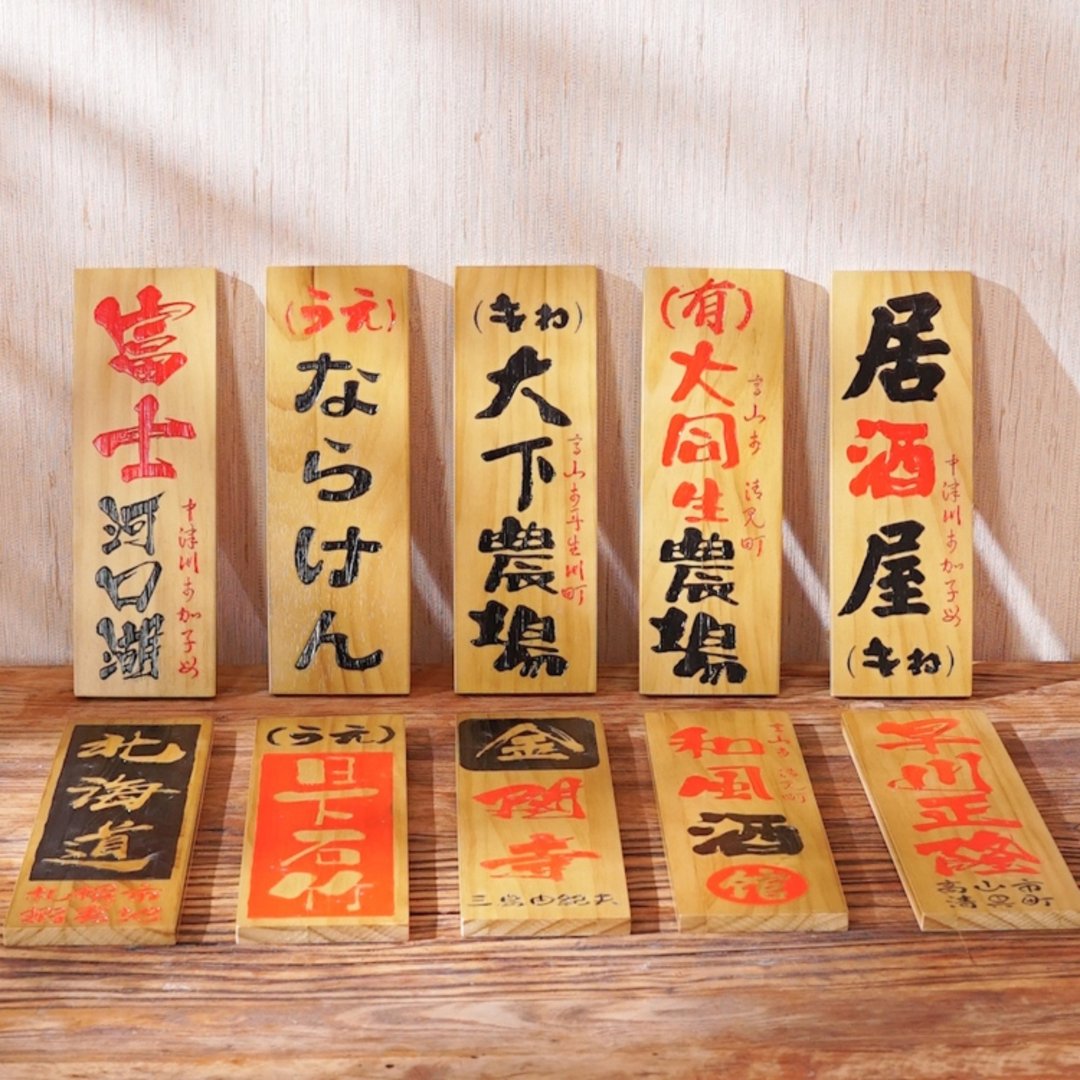 富士
河口湖
中津川市加子母
(うえ)
ならけん
(きね)
大下農場
高山市丹生川町
(有)
大同生
農場
高山市 清見町
居酒屋
(きね)
中津川市加子母
北海道
札幌市
(うえ)
日下石竹
金閣寺
三島由紀夫
和風酒館
高山市 清見町
早川正隆
高山市
清見町